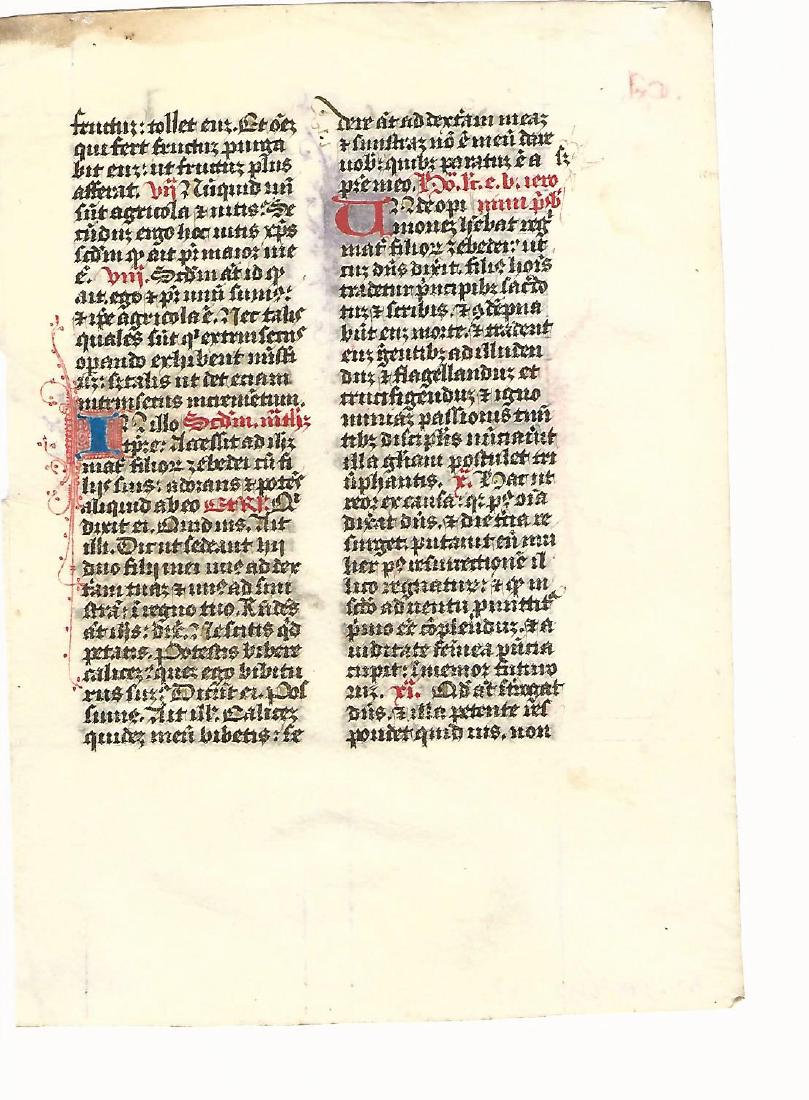 fructuz : tollet euz. Et oēz
qui fert fructuz purga
bit euz : ut fructuz plus
afferat. vij Nūquid unū
sūt agricola ⁊ uitis. Se
cūduz ergo hoc uitis xp̄s
scd̄m qꝫ ait pr̄ maior me
ē. viij. Scd̄m aūt id qꝫ
ait. ego ⁊ pr̄ unū sumꝰ :
⁊ ip̄e agricola ē. Nec talis
quales sūt qⁱ extrinsecus
operando exhibent mīstī
uz : sꝫ talis ut det eciam
intrinsecus incremētum.
IN illo Scd̄m. mt̄hz
tp̄re : Accessit ad ih̄z
mat̄ filioꝝ zebedei cū fi
lijs suis : adorans ⁊ potēs
aliquid ab eo Et Rl̄. Qⁱ
dixit ei. Quid uis. Ait
illi. Dic ut sedeant hij
duo filij mei unꝰ ad dex
tͣam tuaz ⁊ unꝰ ad sini
strā : ī regno tuo. Rn̄dēs
at̄ ih̄s : dix̄. Nescitis qd̄
petatis. Potestis bibere
calicez : quez ego bibitu
rus suz : Dicūt ei. Pos
sumꝰ. Ait ill̄. Calicez
quidez meū bibetis : se
dere āt ad dextͣam meaz
⁊ sinistraz nō ē meū dare
uob̄ : quibꝫ paratuz ē a sꝫ
pr̄e meo. Ho. lc̄. e. b. iero
UNde opi nimi pb̄
nionez h̄ebat reḡ
mat̄ filioꝝ zebedei : ut
cuz dn̄s dixit. filiꝰ hoīs
tradetur prīcipibꝫ sac̄do
tuz ⁊ scribis. ⁊ ꝯdēpna
būt euz morte. ⁊ tradent
euz gentibꝫ ad illuden
duz ⁊ flagellanduz et
crucifigenduz ⁊ igno
minias passionis timē
tibꝫ discip̄lis nūciauīt
illa gl̄iam postulet tri
ūphantis. x. Hac ut
reor ex causa : qꝫ pꝰ oīa
dixat dn̄s. ⁊ die tͨia re
surget : putauit eū mu
lier pꝰ resurrectionē il
lico regnaturꝫ : ⁊ qꝫ in
scd̄o aduentu pmittitͬ
pⁱmo eē cōplenduz : ⁊ a
uiditate feīnea pn̄cia
cupit : īmemor futuro
ruz. xi. Qd̄ āt īt̄rogat
dn̄s. ⁊ illa petente res
pondet quid uis. non